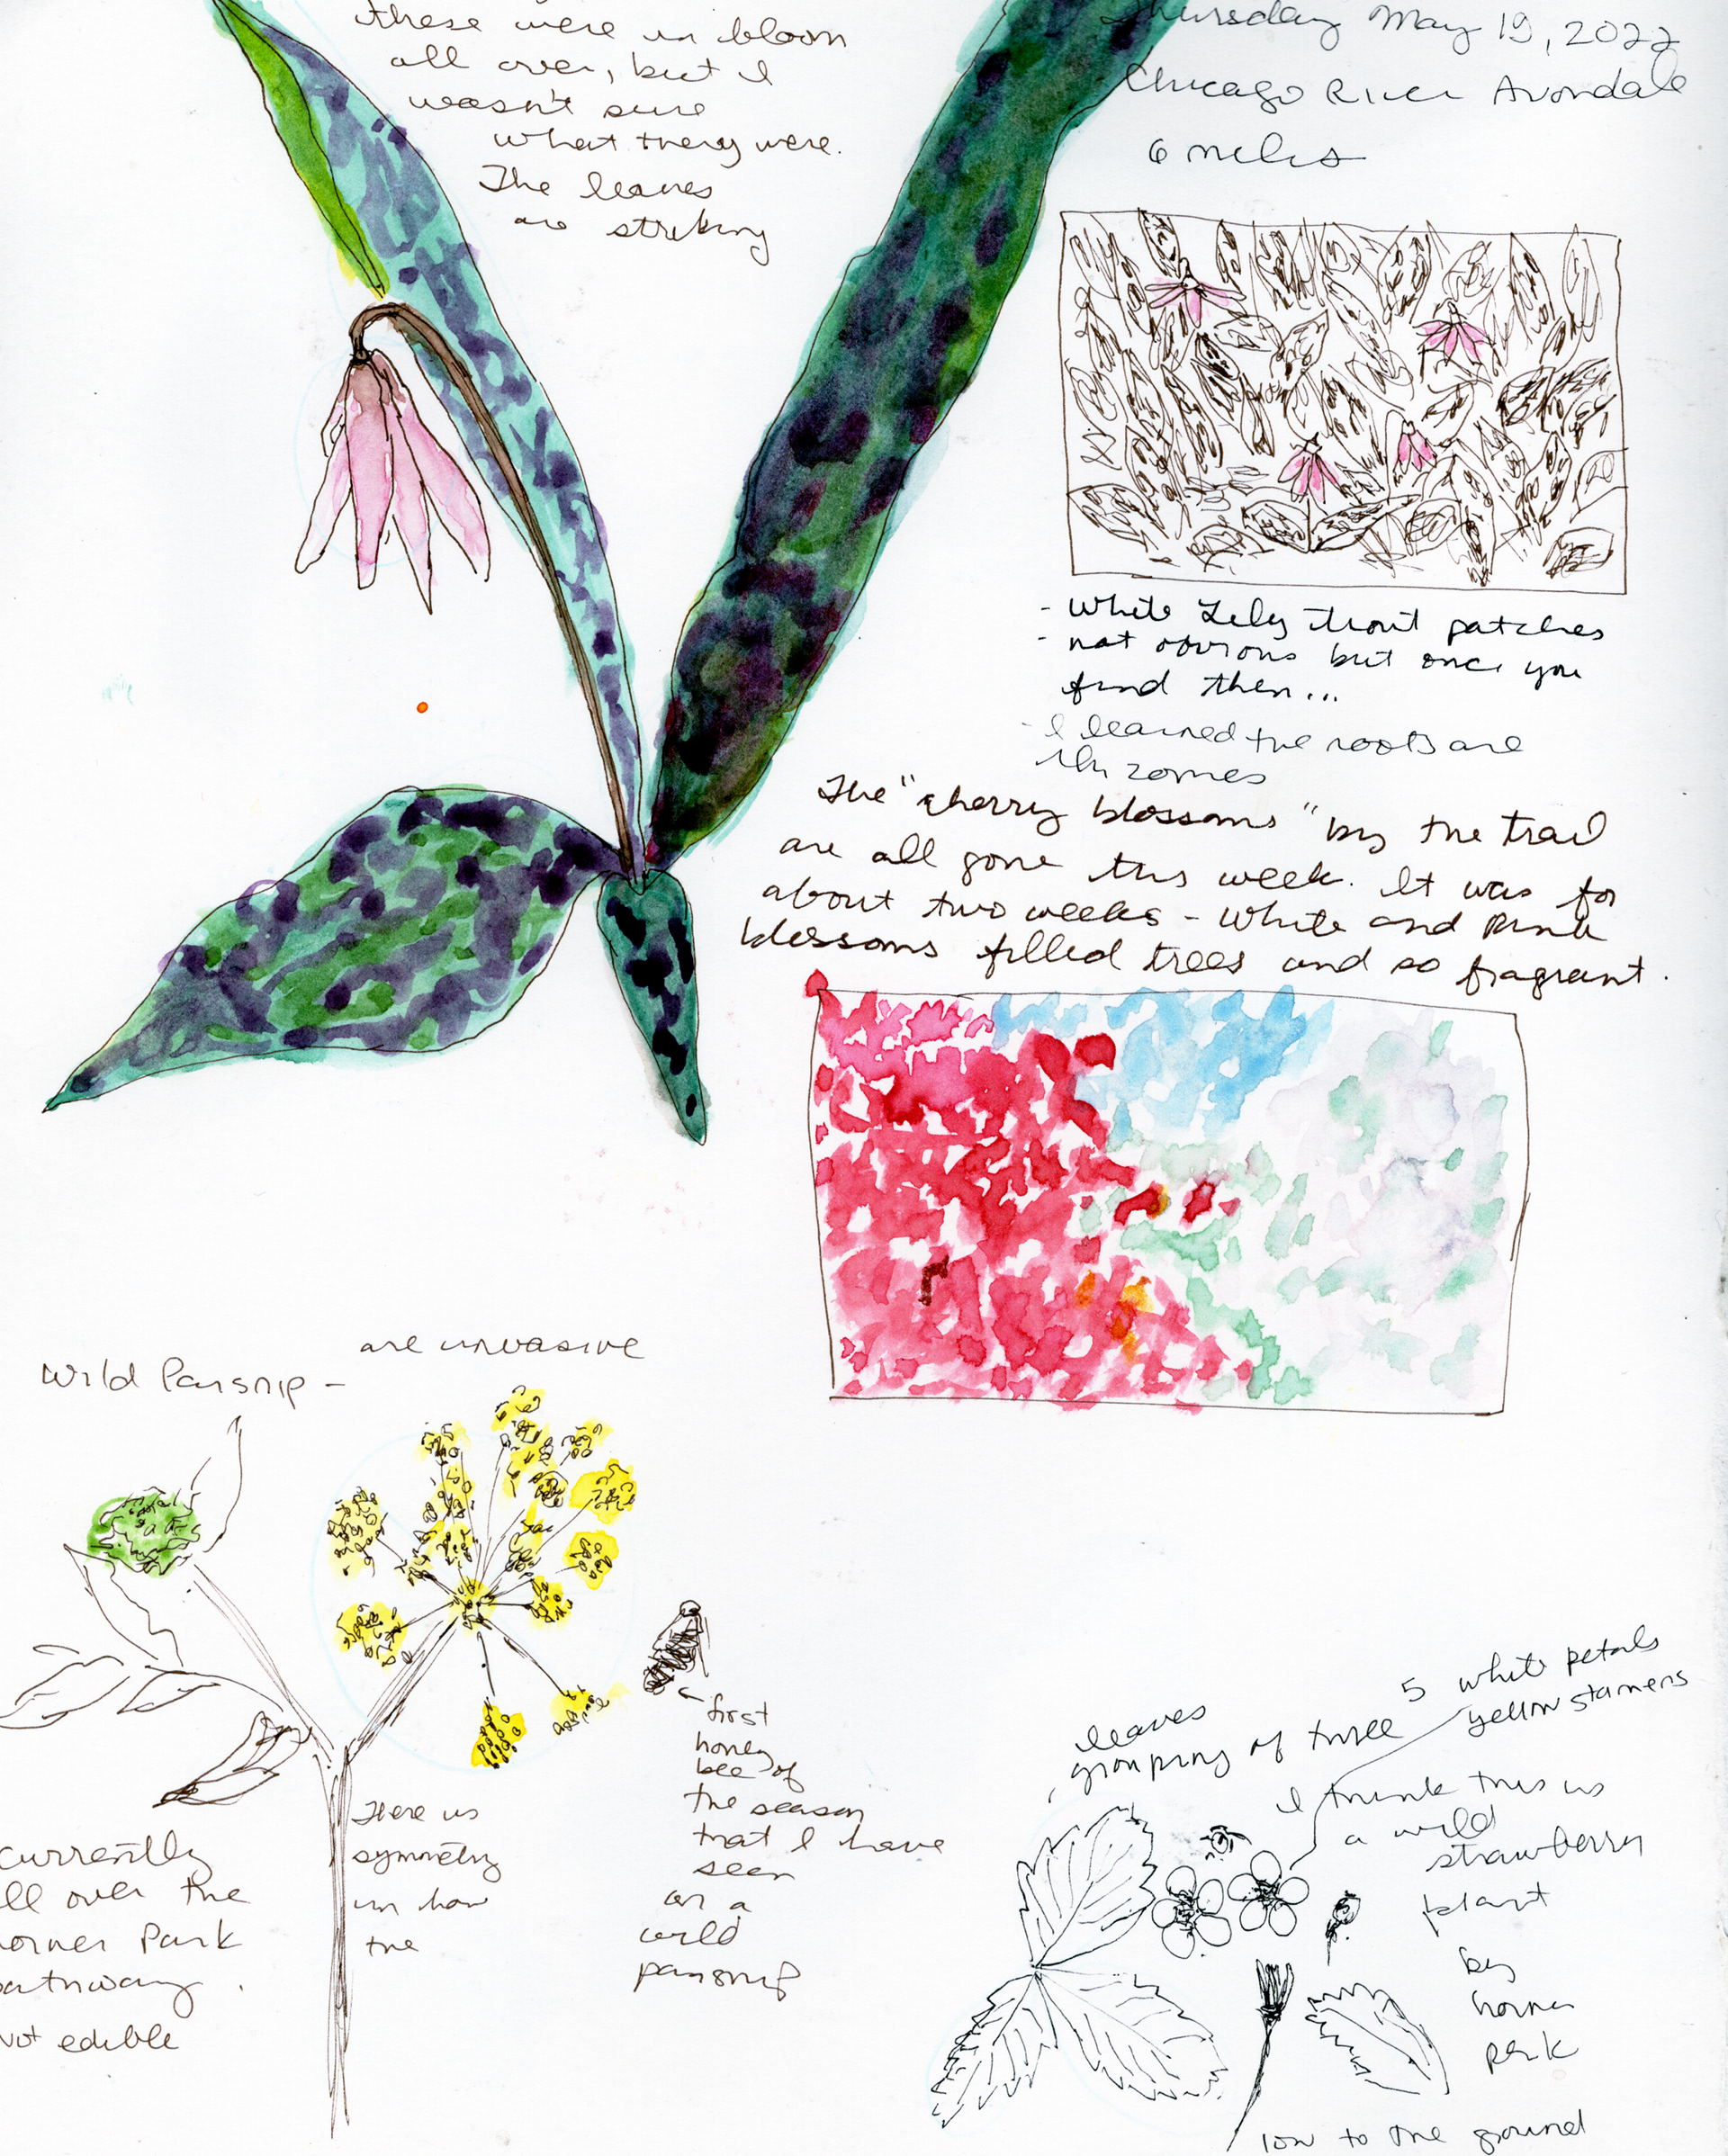 these were in bloom
all over, but I
wasn't sure
what they were.
The leaves
are striking
Thursday May 19, 2022
Chicago River Avondale
6 miles
- White Lily trout patches
- not obvious but once you
find them...
- I learned the roots are
rhizomes
The "cherry blossoms" by the trail
are all gone this week. It was for
about two weeks - white and pink
blossoms filled trees and so fragrant.
Wild Parsnip -
are invasive
currently
all over the
Horner Park
pathway.
not edible
There is
symmetry
in how
the
first
honey
bee of
the season
that I have
seen
on a
wild
parsnip
leaves
grouping of three
5 white petals
yellow stamens
I think this is
a wild
strawberry
plant
by
horner
park
low to the ground